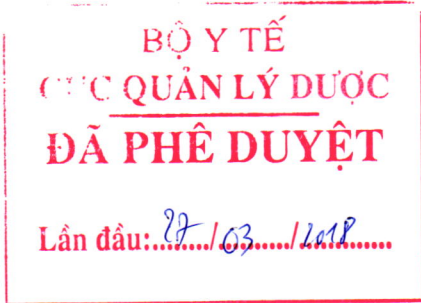 BỘ Y TẾ
CỤC QUẢN LÝ DƯỢC
ĐÃ PHÊ DUYỆT
Lần đầu: 27/03/2018